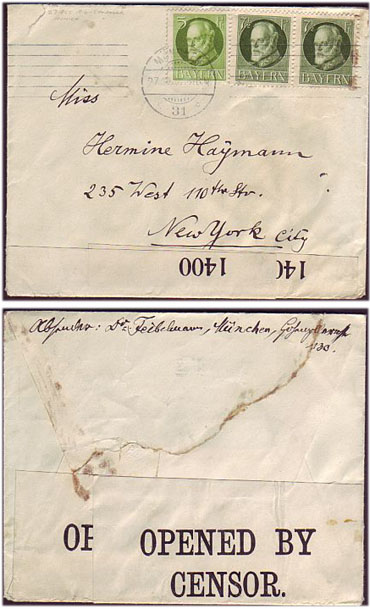 5
7½
BAYERN BAYERN BAYERN
31
Miss
Hermine Haymann
235 West 110th Str.
New York City
1400 140
Absender: Dr. Feibelmann, München,
130.
OP OPENED BY
CENSOR.